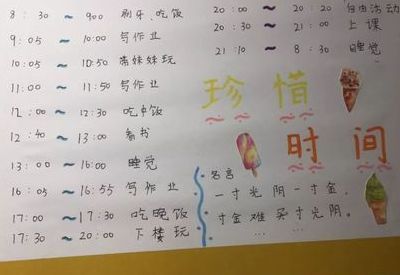 8:30 ~ 9:00 刷牙、吃饭
9:05 ~ 10:00 写作业
10:05 ~ 10:50 带妹妹玩
11:00 ~ 11:50 写作业
12:00 ~ 12:30 吃中饭
12:40 ~ 13:00 看书
13:00 ~ 16:00 睡觉
16:05 ~ 16:55 写作业
17:00 ~ 17:30 吃晚饭
17:30 ~ 20:00 下楼玩
20:00 ~ 20:20 自由活动
20:20 ~ 21:00 上课
21:10 ~ 8:30 睡觉
珍惜
时间
名言
一寸光阴一寸金,
寸金难买寸光阴。
... ...